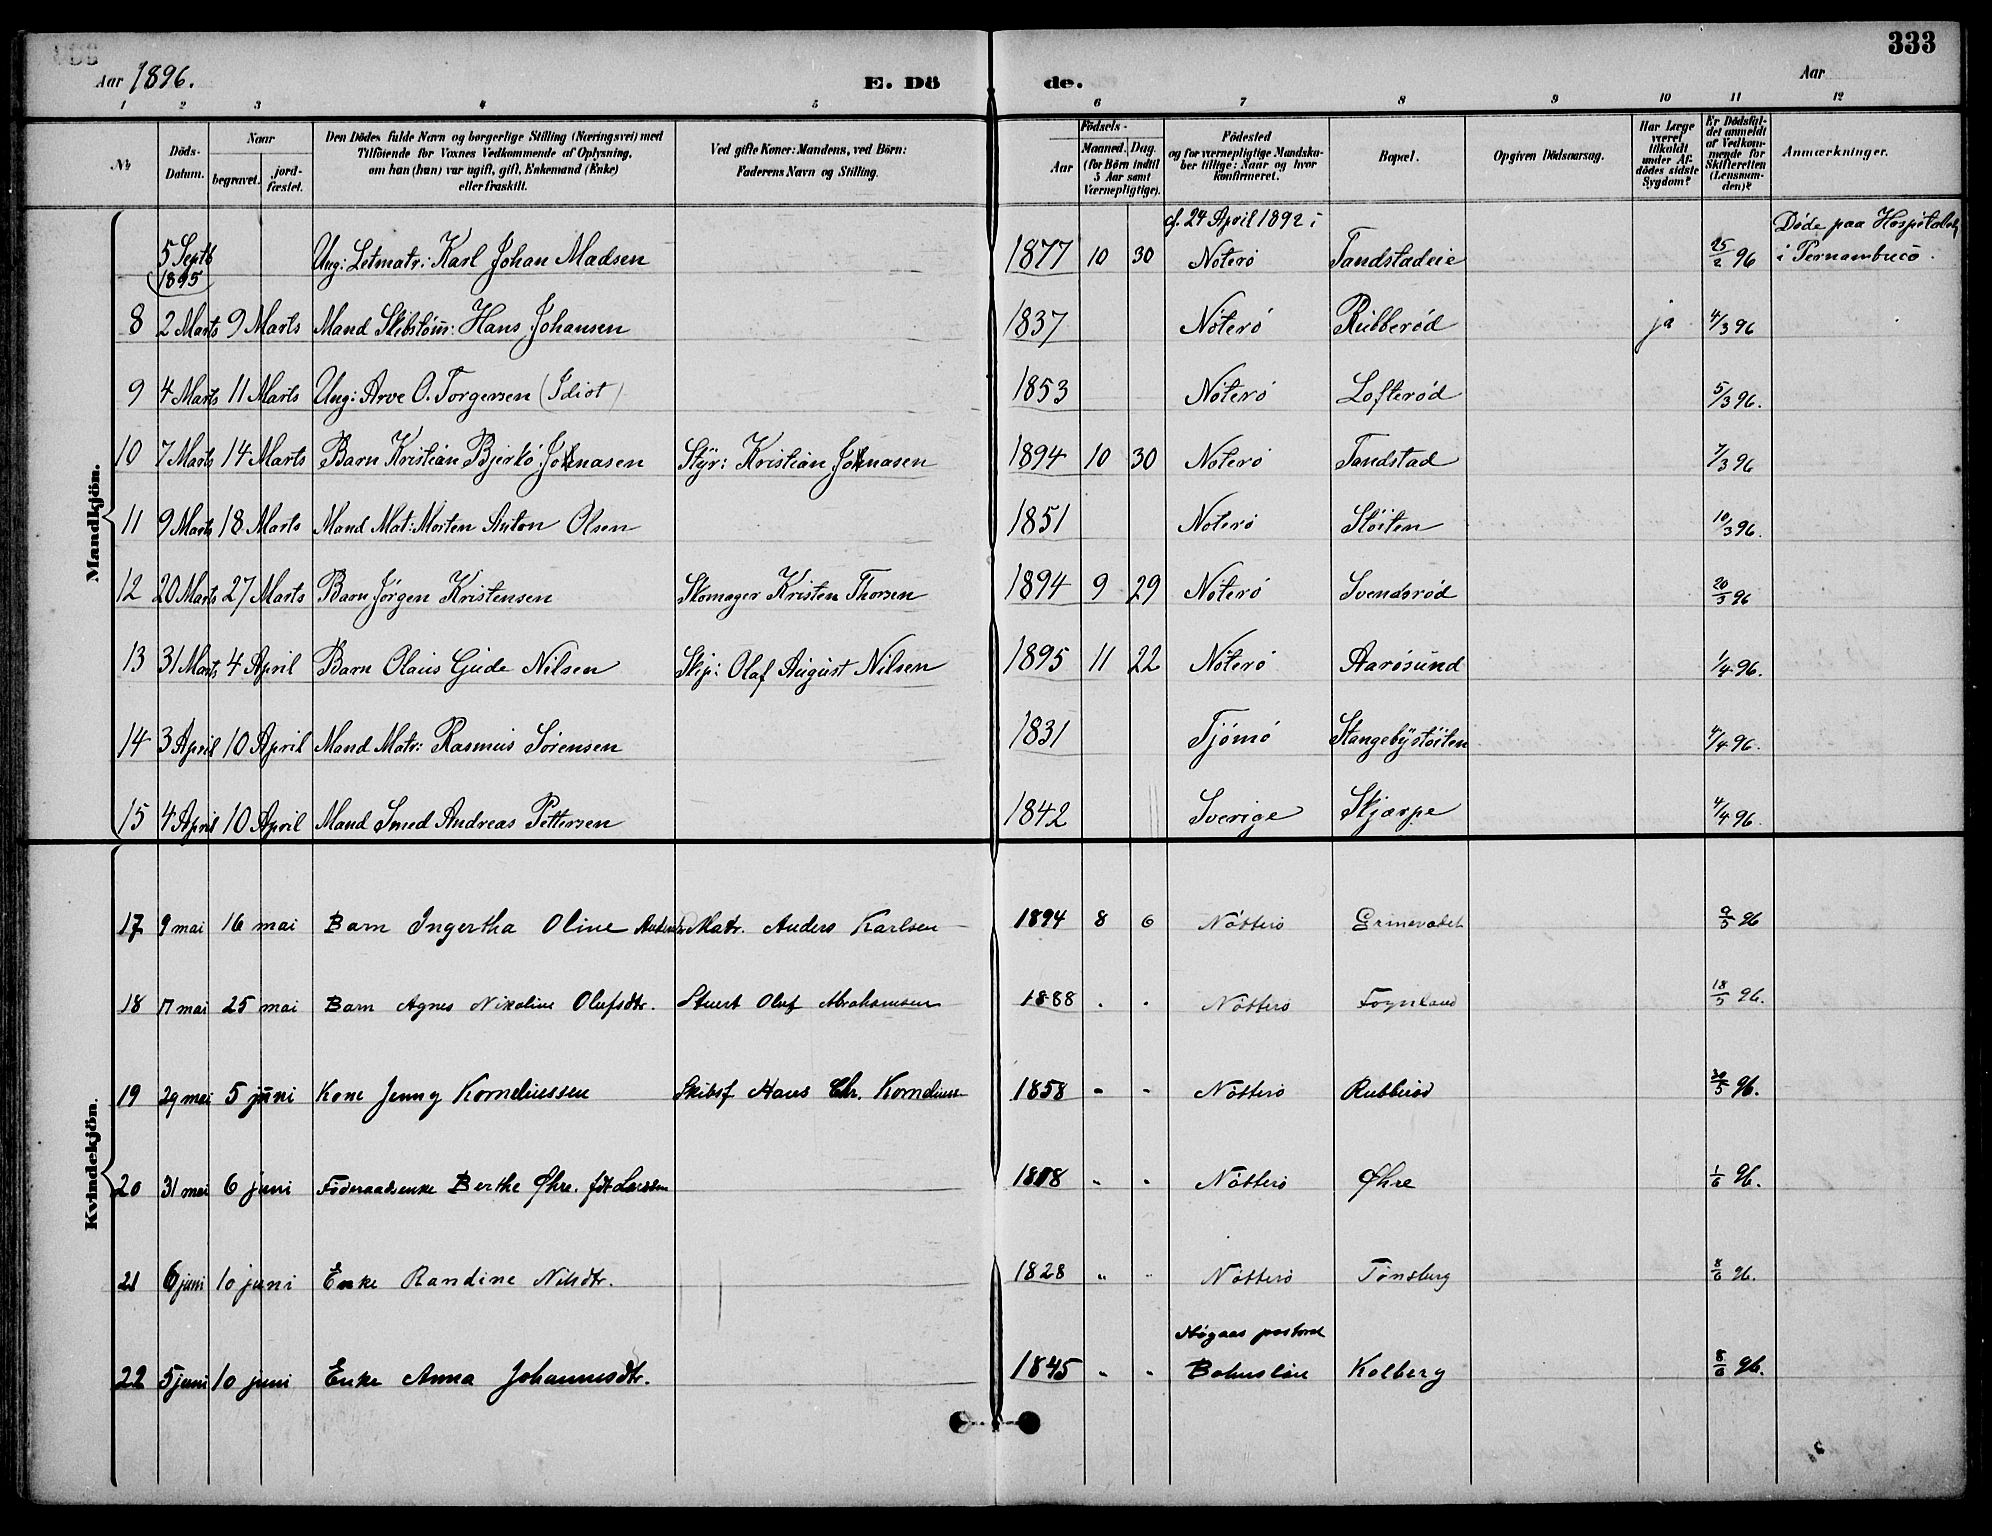 333
Aar 1896. E. Dö de. Aar
1 2 3 4 5 6 7 8 9 10 11 12
№ Döds-Datum. Naar begravet. jordfæstet. Den Dödes fulde Navn og borgerlige Stilling (Næringsvei) med Tilföiende for Voxnes Vedkommende af Oplysning, om han (hun) var ugift, gift, Enkemand (Enke) eller fraskilt. Ved gifte Koner: Mandens, ved Börn: Faderens Navn og Stilling. Födsels- Aar Maaned. Dag. (for Börn indtil 5 Aar samt Værnepligtige). Födested og for værnepligtige Mandskaber tillige: Naar og hvor konfirmeret. Bopæl. Opgiven Dödsaarsag. Har Læge været tilkaldt under Afdödes sidste Sygdom? Er Dödsfaldet anmeldt af Vedkommende for Skifteretten (Lensmanden)? Anmærkninger.
Mandkjön.
5 Septb 1895 Ung: Letmatr: Karl Johan Madsen 1877 10 30 cf. 24 April 1892 i Nöterö Tandstadeie 25/2 96 Döde paa Hospitalet i Pernambuco.
8 2 Marts 9 Marts Mand Skibstöm: Hans Johansen 1837 Nöterö Rubberöd ja 4/3 96
9 4 Marts 11 Marts Ung: Arve O. Torgersen (Idiot) 1853 Nöterö Lofteröd 5/3 96.
10 7 Marts 14 Marts Barn Kristian Bjerkö Johnasen Styr: Kristian Johnasen 1894 10 30 Nöterö Tandstad 7/3 96
11 9 Marts 18 Marts Mand Mat: Morten Anton Olsen 1851 Nöterö Stöiten 10/3 96.
12 20 Marts 27 Marts Barn Jörgen Kristensen Skomager Kristen Thorsen 1894 9 29 Nöterö Svendsröd 20/3 96
13 31 Marts 4 April Barn Olaus Gude Nilsen Skip: Olaf August Nilsen 1895 11 22 Nöterö Aarösund 1/4 96.
14 3 April 10 April Mand Matr: Rasmus Sörensen 1831 Tjömö Stangebystöiten 4/4 96.
15 4 April 10 April Mand Smed Andreas Pettersen 1842 Sverige Skjærpe 4/4 96.
Kvindekjön.
17 9 mai 16 mai Barn Ingertha Oline Matr. Anders Karlsen 1894 8 6 Nötterö 9/5 96
18 17 mai 25 mai Barn Agnes Nikoline Olafsdtr. Stuert Olaf Abrahamsen 1888 . . Nötterö Föynland 18/5 96.
19 29 mai 5 juni Kone Jenny Korneliussen Skibsf Hans Chr. Korneliussen 1858 - - Nötterö Rubberöd 30/5 96.
20 31 mai 6 juni Föderaadsenke Berthe Øhre. fdt Larsen 1808 - - Nötterö Øhre 1/6 96.
21 6 juni 10 juni Enke Randine Nilsdtr. 1828 " " Nötterö Tönsberg 8/6 96.
22 5 juni 10 juni Enke Anna Johannesdtr. 1845 " " Bohuslän Kolberg 8/6 96.